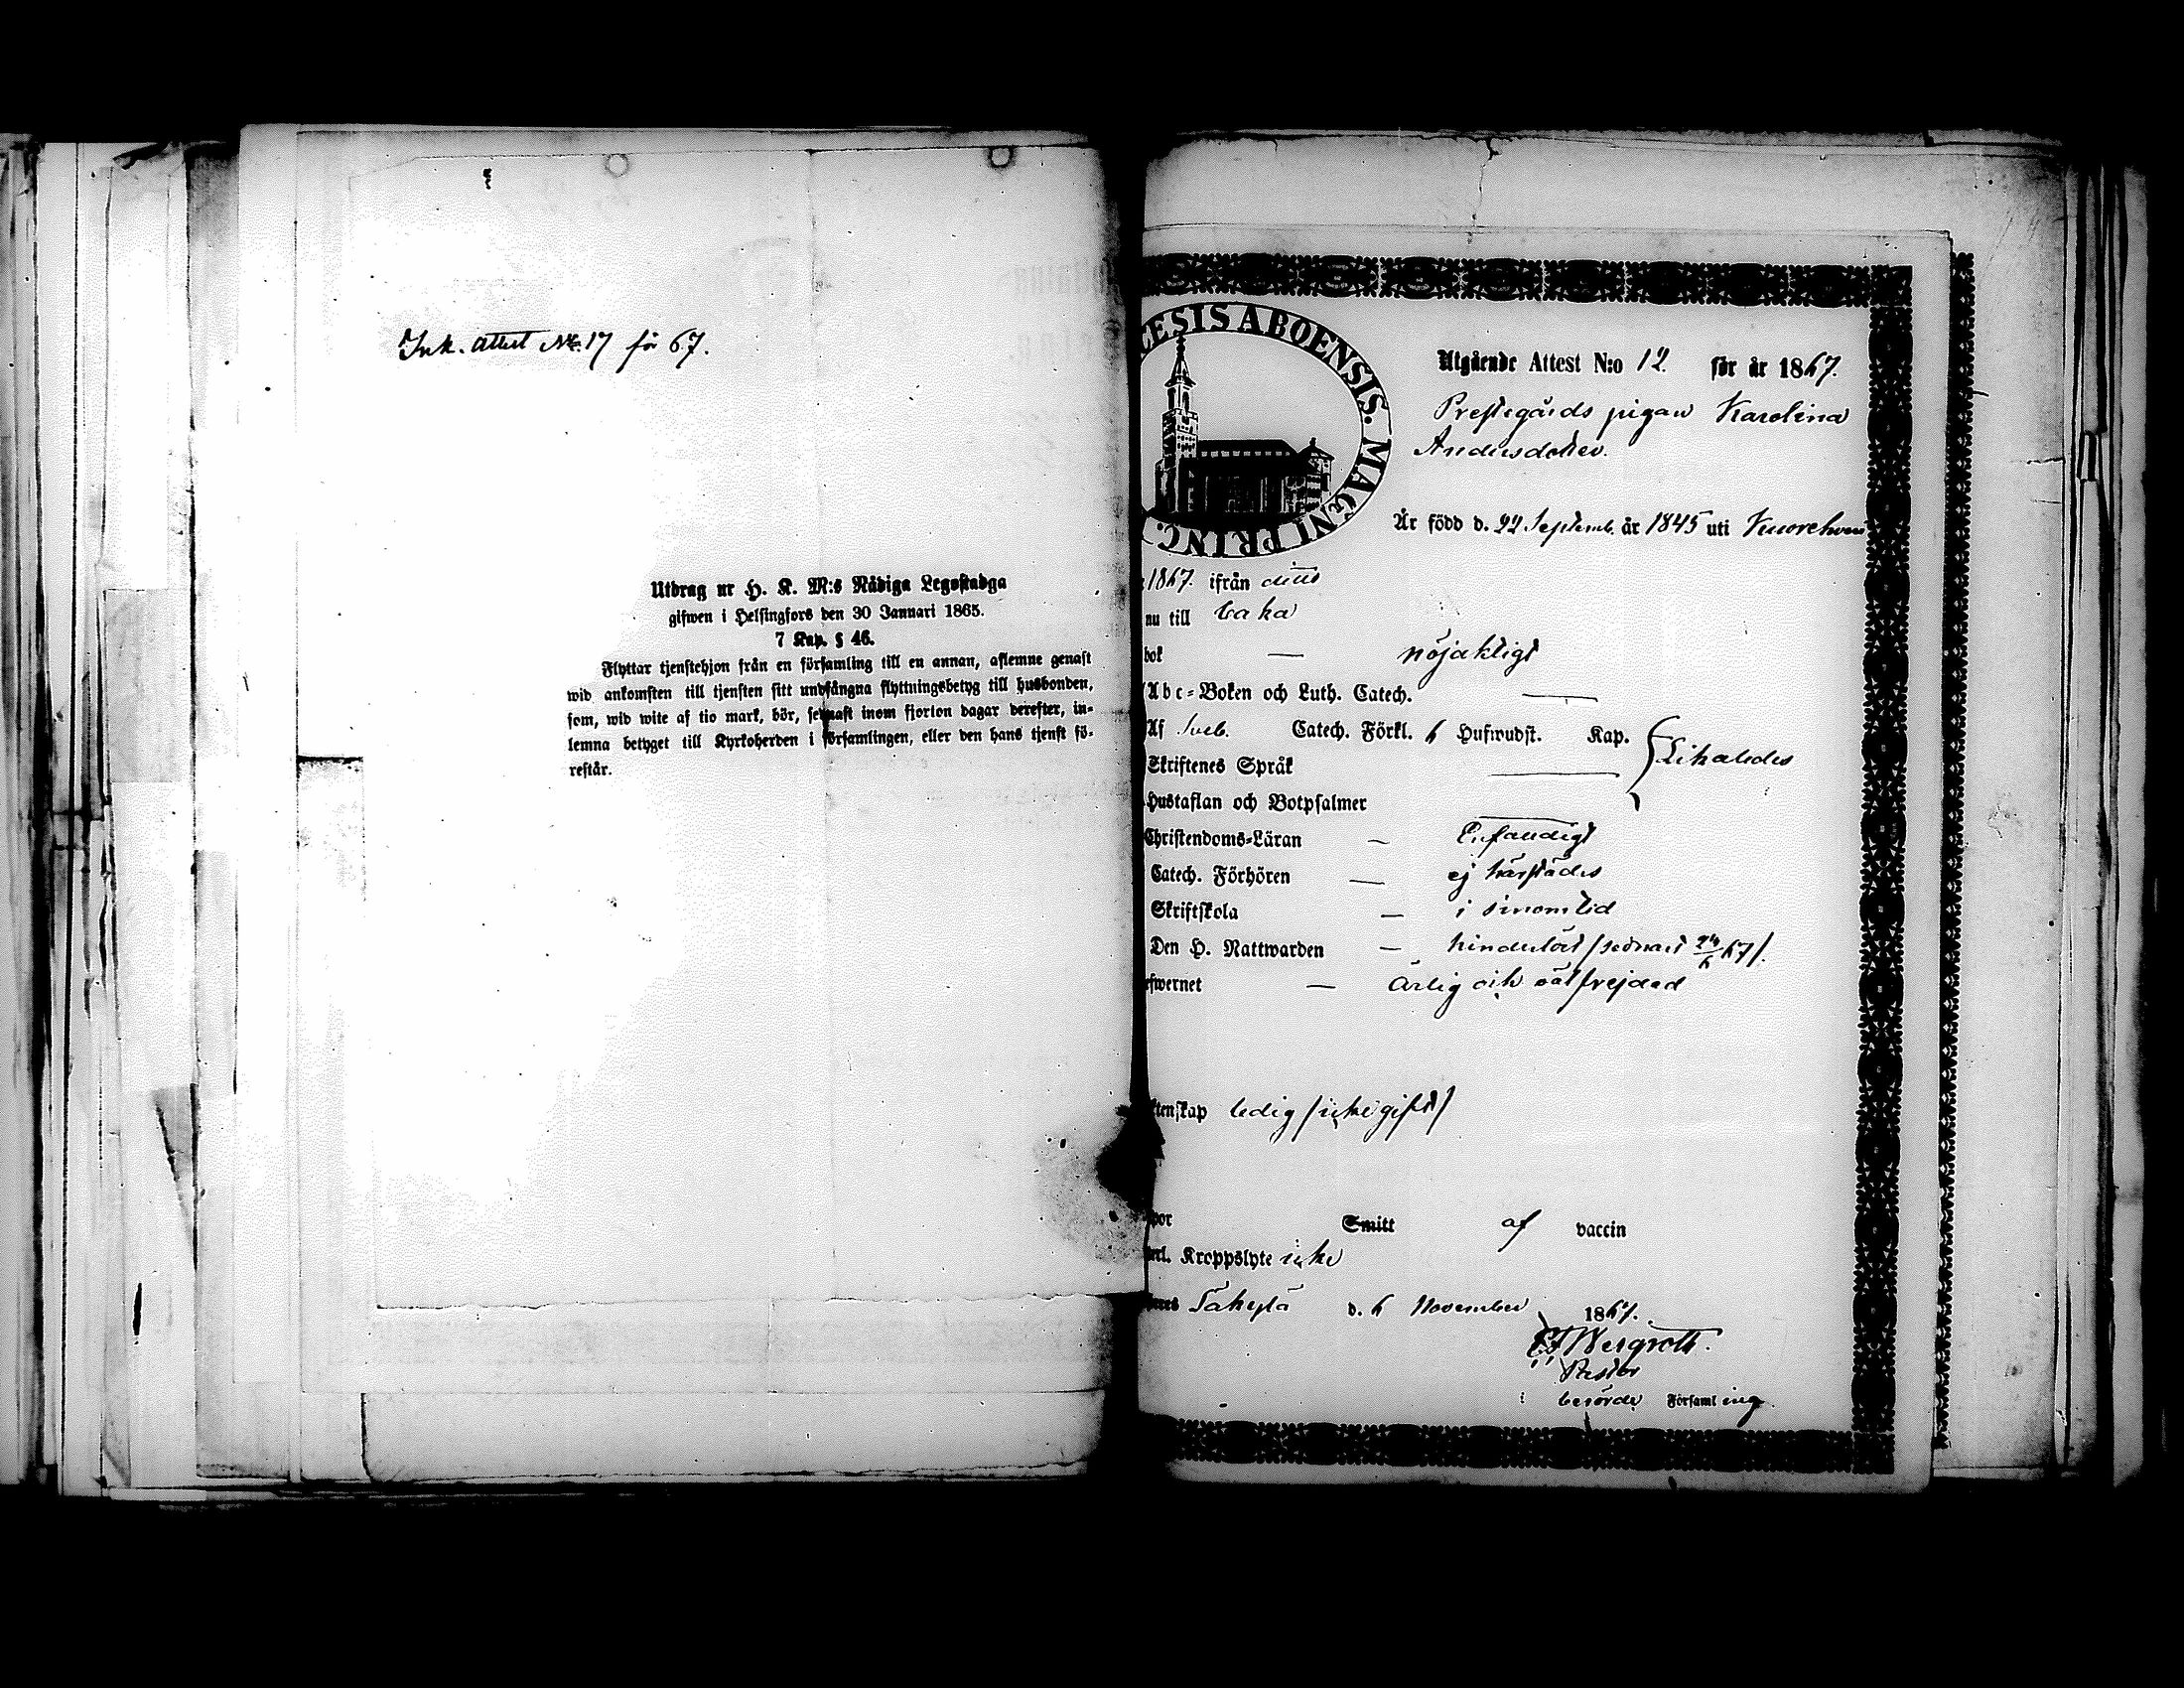 Ink. attest No. 17 för 67.
Utdrag ur H. K. M:s Nådiga Legostadga
gifwen i Helsingfors den 30 Januari 1865.
7 Kap. § 46.
Flyttar tjenstehjon från en församling till en annan, aflemne genast
wid ankomsten till tjensten sitt undfångna flyttningsbetyg till husbonden,
som, wid wite af tio mark, bör, sednast inom fjorton dagar derefter, in-
lemna betyget till Kyrkoherden i församlingen, eller den hans tjenst fö-
restår.
CESIS ABOENSIS. MAGNI PRINC.
Utgående Attest N:o 12 för år 1867.
Prestegårds pigan Karolina
Andersdotter.
Är född d. 22 Septemb. år 1845 uti
1867. ifrån
nu till
bok — nöjaktigt
Abc-Boken och Luth. Catech. —
Af Sveb. Catech. Förkl. 6 Hufwudst. Kap.
Skriftenes Språk — Likaledes
Hustaflan och Botpsalmer
Christendoms-Läran — Enfaldigt
Catech. Förhören — ej härstädes
Skriftskola — i sinom tid
Den H. Nattwarden — hinderlöst /sednast 24/6 67/.
efwernet — Ärlig och väl frejdad
ktenskap ledig /icke gift/
Smitt af vaccin
Kroppslyte icke
Säkylä d. 6 November 1867.
Pastor
berörde Församling.